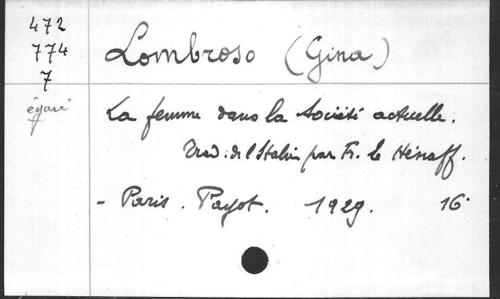 472
774
7
égaré
Lombroso (Gina)
La femme dans la Société actuelle.
Trad. de l'Italien par Fr. le Hénaff.
- Paris. Payot. 1929. 16°